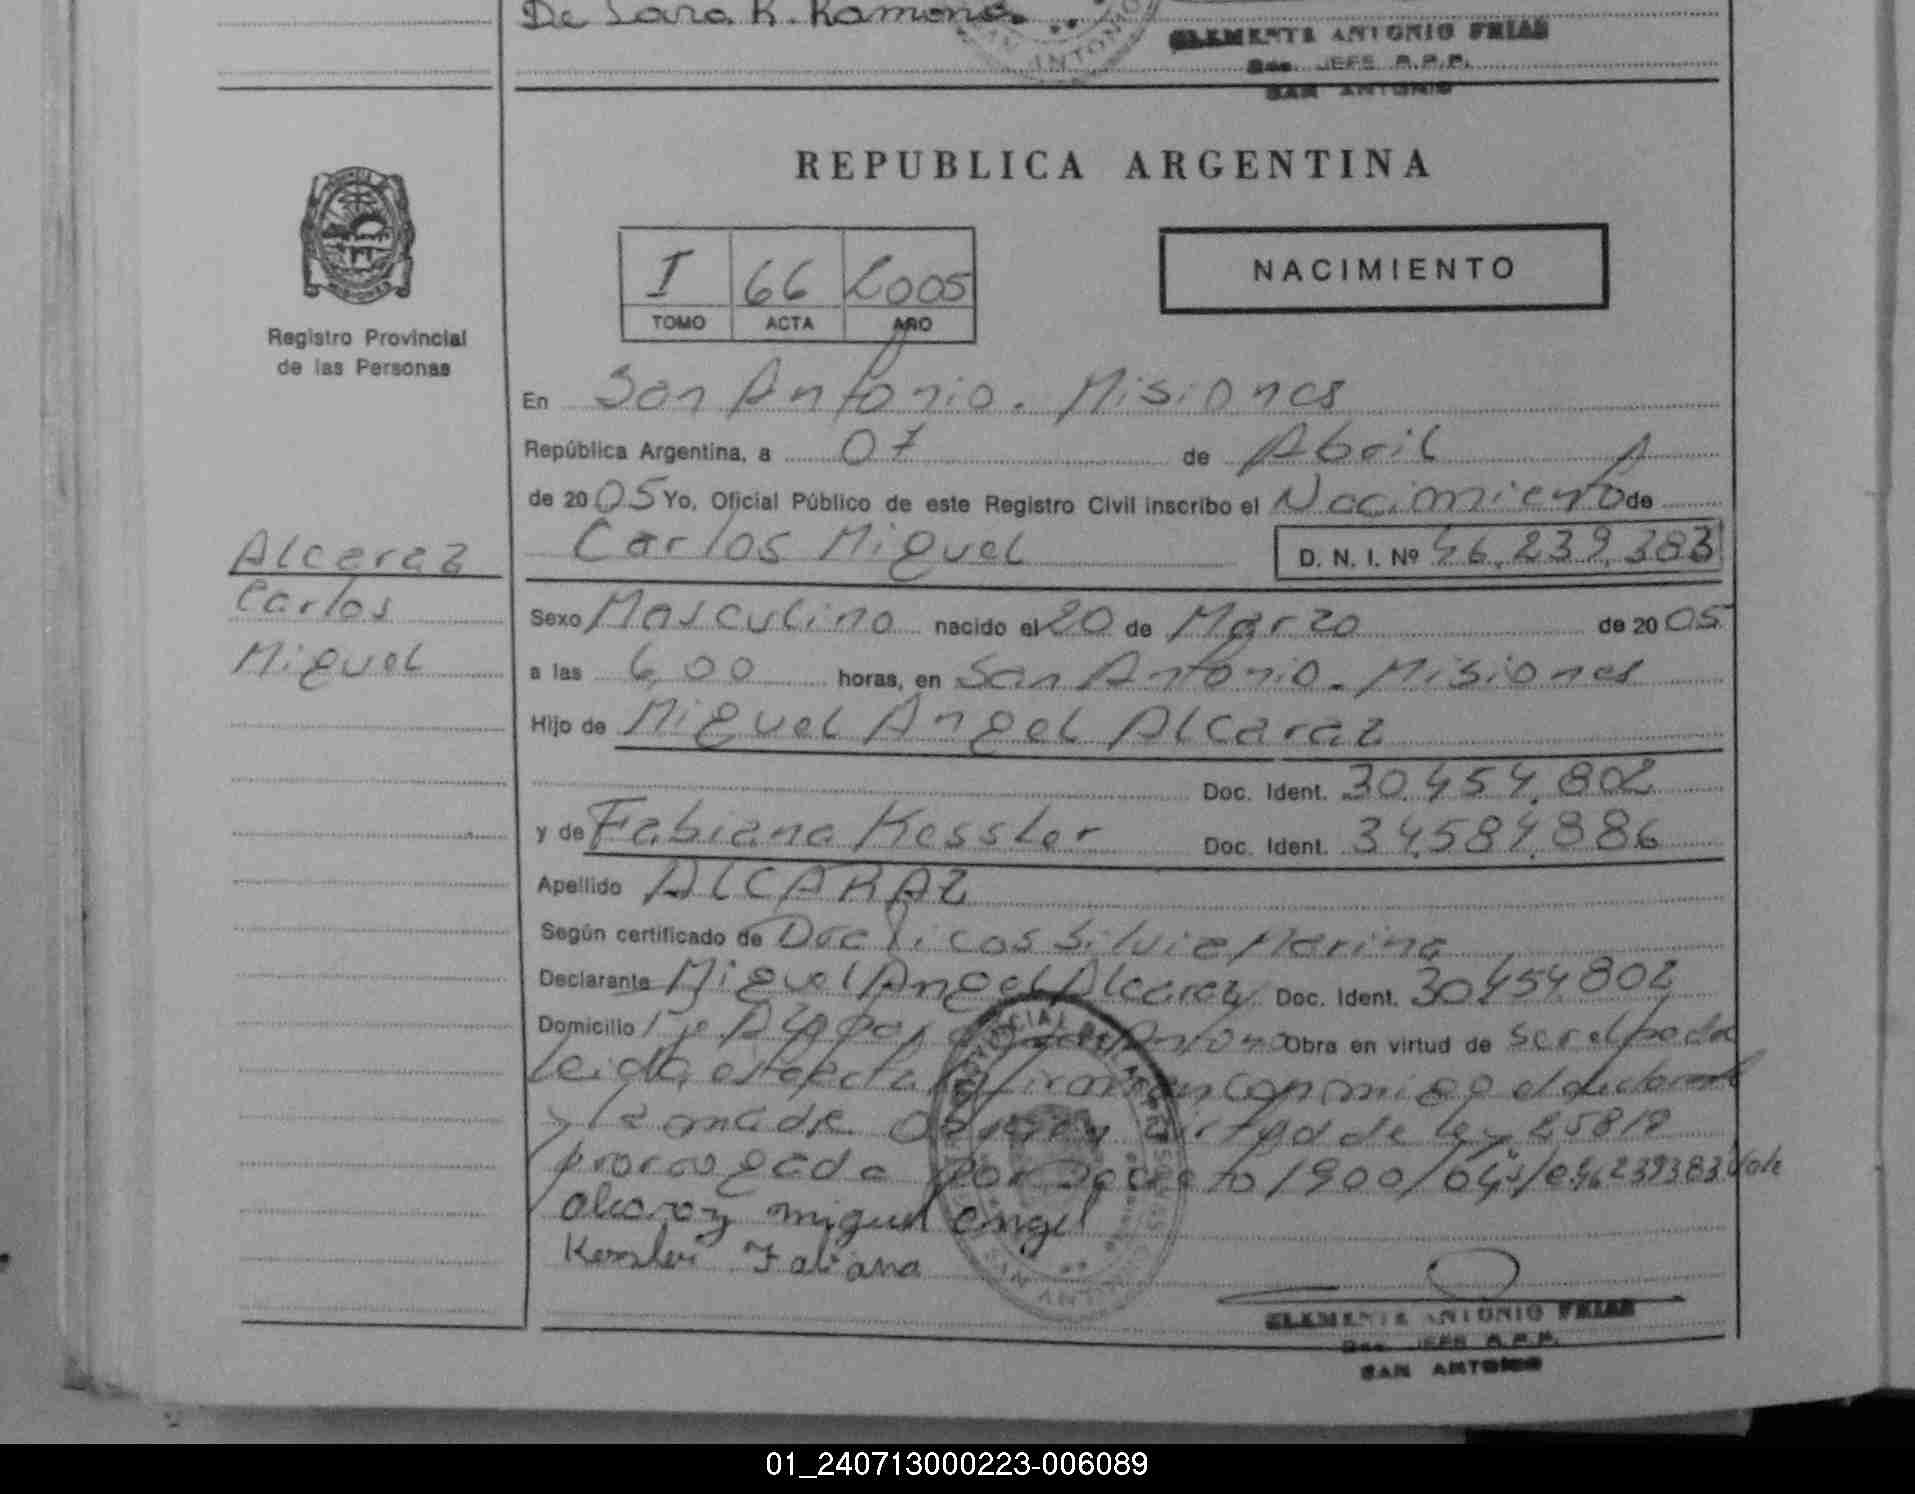 De Lara R. Ramona
CLEMENTE ANTONIO FRIAS
JEFE R.P.P.
SAN ANTONIO
SAN ANTONIO
REPUBLICA ARGENTINA
PROVINCIA DE
MISIONES
Registro Provincial
de las Personas
I 66 2005
TOMO ACTA AÑO
NACIMIENTO
En San Antonio. Misiones
República Argentina, a 07 de Abril
de 2005 Yo, Oficial Público de este Registro Civil inscribo el Nacimiento de
Carlos Miguel D. N. I. Nº 46.239.383
Alcaraz
Carlos
Miguel
Sexo Masculino nacido el 20 de Marzo de 2005
a las 6,00 horas, en San Antonio. Misiones
Hijo de Miguel Angel Alcaraz
Doc. Ident. 30.454.802
y de Fabiana Kessler Doc. Ident. 34.584.886
Apellido ALCARAZ
Según certificado de Silvia Marina
Declarante Miguel Angel Alcaraz Doc. Ident. 30.454.802
Domicilio Antonio Obra en virtud de ser el padre
Leida el acta la firman conmigo el declarante
y la madre en virtud de ley 25819
prorrogada por Decreto 1900/04 s/e 46239383 Vale
alcaraz miguel angel
Kessler Fabiana
SAN ANTONIO
CLEMENTE ANTONIO FRIAS
JEFE R.P.P.
SAN ANTONIO
01_240713000223-006089